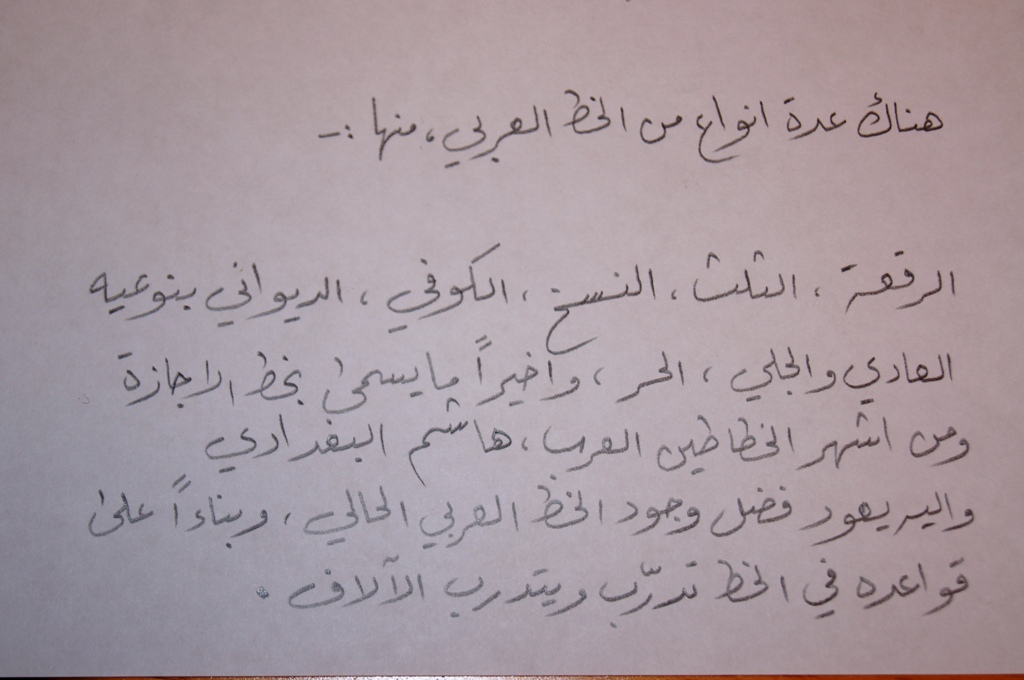 هناك عدة انواع من الخط العربي، منها :-
الرقعة ، الثلث ، النسخ ، الكوفي ، الديواني بنوعيه
العادي والجلي ، الحر ، واخيراً ما يسمى بخط الاجازة
ومن اشهر الخطاطين العرب ، هاشم البغدادي
واليه يعود فضل وجود الخط العربي الحالي ، وبناءاً على
قواعده في الخط تدرّب ويتدرب الآلاف .